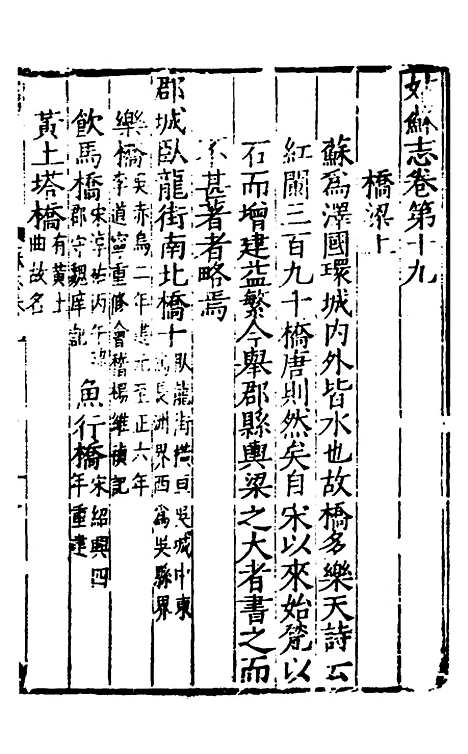 姑蘇志卷第十九
橋梁上
蘇爲澤國環城內外皆水也故橋多樂天詩云
紅闌三百九十橋唐則然矣自宋以來始甃以
石而增建益繁今舉郡縣輿梁之大者書之而
不甚著者略焉
郡城臥龍街南北橋十 臥龍街橫亘吳城中東
爲長洲界西爲吳縣界
樂橋 吳赤烏二年建元至正六年
李道寧重修會稽楊維禎記
飲馬橋 宋淳祐丙午
郡守魏庠記
魚行橋 宋紹興四
年重建
黃土塔橋 有黃土
曲故名